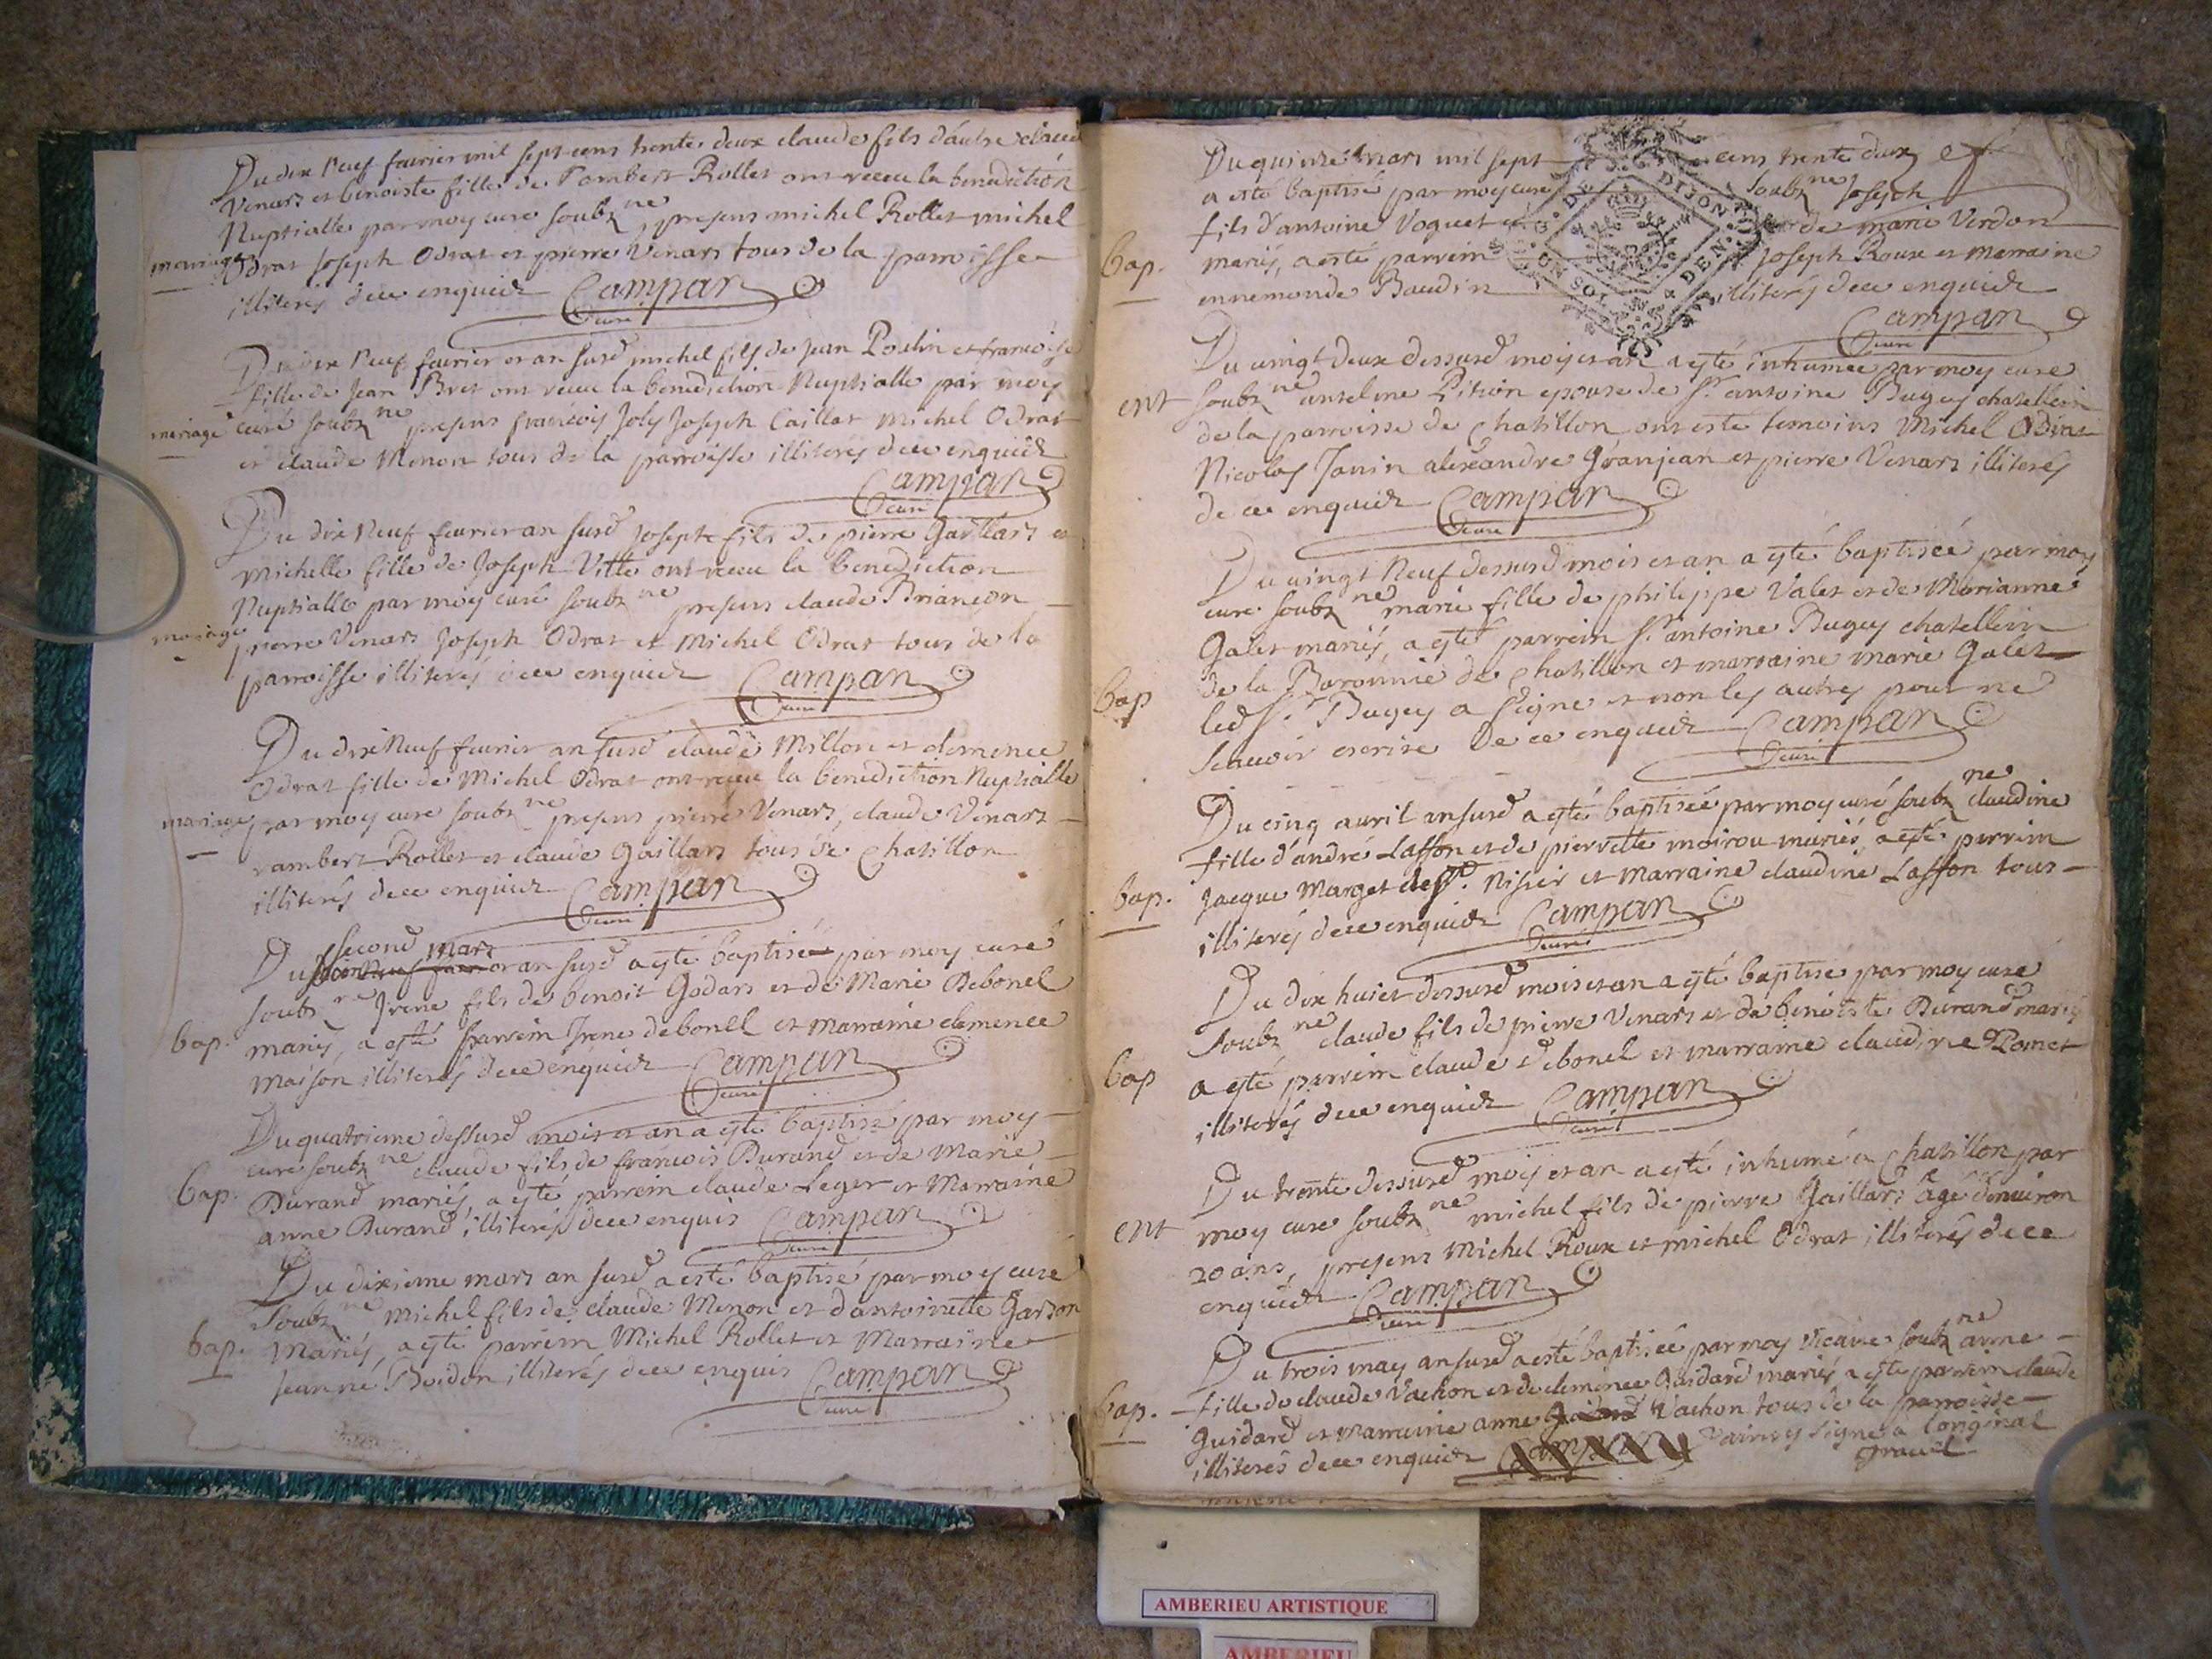 Du dix Neuf feurier mil sept cens trente deux claude fils d'autre claude
Venars et benoiste fille de Rambert Rollet ont receu la benediction
Nuptialle par moy cure soubz ne presens michel Rollet michel
mariage Odrat Joseph Odrat et pierre Venars tous de la parroisse
illiterés de ce enquier Campan
Curé
Du dix Neuf feurier et an susd michel fils de Jean Poulin et francoise
fille de Jean Bret ont receu la benediction Nuptialle par moy
mariage curé soubz ne presens francois Joly Joseph Caillat Michel Odrat
et claude Menon tous de la parroisse illiterés de ce enquier
Campan
Curé
Du dix Neuf feurier an susd Joseph fils de pierre Gaillars et
Michelle fille de Joseph Vitte ont receu la benediction
Nuptialle par moy curé soubz ne presens claude Briancon
mariage pierre Venars Joseph Odrat et Michel Odrat tous de la
parroisse illiterés de ce enquier Campan
Curé
Du dix Neuf feurier an susd claude Millon et clemence
Odrat fille de Michel Odrat ont receu la benediction Nuptialle
mariage par moy cure soubz ne presens pierre Venars, claude Venars
rambert Rollet et claude Gaillars tous de Chatillon
illiterés de ce enquier Campan
Curé
second mars
Du et an susd a esté baptisé par moy curé
soubz ne Irene fils de benoit Godars et de Marie Debonel
bap. mariés, a esté parrein Irene debonel et marraine clemence
maison illiterés de ce enquier Campan
Curé
Du quatrieme dessusd mois et an a esté baptisé par moy
cure soubz ne claude fils de francois Durand et de Marie
bap. Durand mariés, a esté parrein claude Leger et Marraine
anne Durand illiterés de ce enquis Campan
Curé
Du dixieme mars an susd a esté baptisé par moy cure
soubz ne Michel fils de claude Menon et d'antoinette Garson
bap. Mariés, a esté parrein Michel Rollet et Marraine
Jeanne Boidon illiterés de ce enquis Campan
Curé
Du quinze mars mil sept cens trente deux
a esté baptisé par moy curé soubz ne Joseph
fils d'antoine Voguet et de marie Verdon
bap. mariés, a esté parrein Joseph Roux et marraine
ennemonde Baudin illiterés de ce enquier
Campan
Curé
Du vingt deux dessusd mois et an a esté inhumée par moy cure
ent soubz ne anteline Pition epouse de Sr. antoine Bugey chatellein
de la parroisse de Chatillon ont esté temoins Michel Odrat
Nicolas Janin alexandre Granjean et pierre Venars illiterés
de ce enquier Campan
Curé
Du vingt Neuf dessusd mois et an a esté baptisée par moy
cure soubz ne marie fille de philippe Valet et de Marianne
Galet mariés, a esté parrein Sr. antoine Bugey chatellein
de la Baronnie de Chatillon et marraine marie Galet
bap led Sr. Bugey a signe et non les autres pour ne
scauoir escrire de ce enquier Campan
Curé
Du cinq auril an susd a esté baptisée par moy curé soubz ne claudine
fille d'andré Laffon et de pierrette moirou mariés, a esté parrein
bap. Jacque Marget de St. Nisier et Marraine claudine Laffon tous
illiterés de ce enquier Campan
Curé
Du dix huict dessusd mois et an a esté baptisé par moy cure
soubz ne claude fils de pierre Venars et de benoiste Durand mariés
bap a esté parrein claude debonel et marraine claudine Pomet
illiterés de ce enquier Campan
Curé
Du trente dessusd mois et an a esté inhumé a Chatillon par
ent moy cure soubz ne michel fils de pierre Gaillars âgé denuiron
20 ans, presens Michel Roux et michel Odrat illiterés de ce
enquier Campan
Curé
Du trois may an susd a esté baptisée par moy Vicaire soubz ne anne
bap. fille de claude Vachon et de clemence Guidard mariés a esté parrein claude
Guidard et marraine anne Vachon tous de la parroisse
illiterés de ce enquier signe a l'original
DIJON
DEN
SOL
AMBERIEU ARTISTIQUE
AMBERIEU